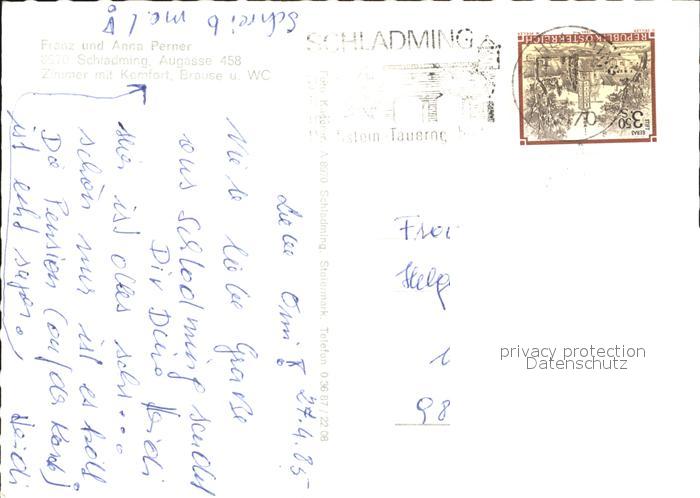 Schreib mal!
Franz und Anna Perner
8970 Schladming, Augasse 458
Zimmer mit Komfort, Brause u. WC
SCHLADMING
Dachstein-Tauern
REPUBLIK ÖSTERREICH
STIFT GERAS
S 3.50
A 8970 Schladming, Steiermark, Telefon 0 36 87 / 22 08
Liebe Omi! 27.4.85
Viele liebe Grüße
aus Schladming sendet
Dir Deine Heidi
hier ist alles sehr...
schön nur ist es kalt
Die Pension (auf der Karte)
ist echt super. Heidi
Frau
Helg
1
98
privacy protection
Datenschutz